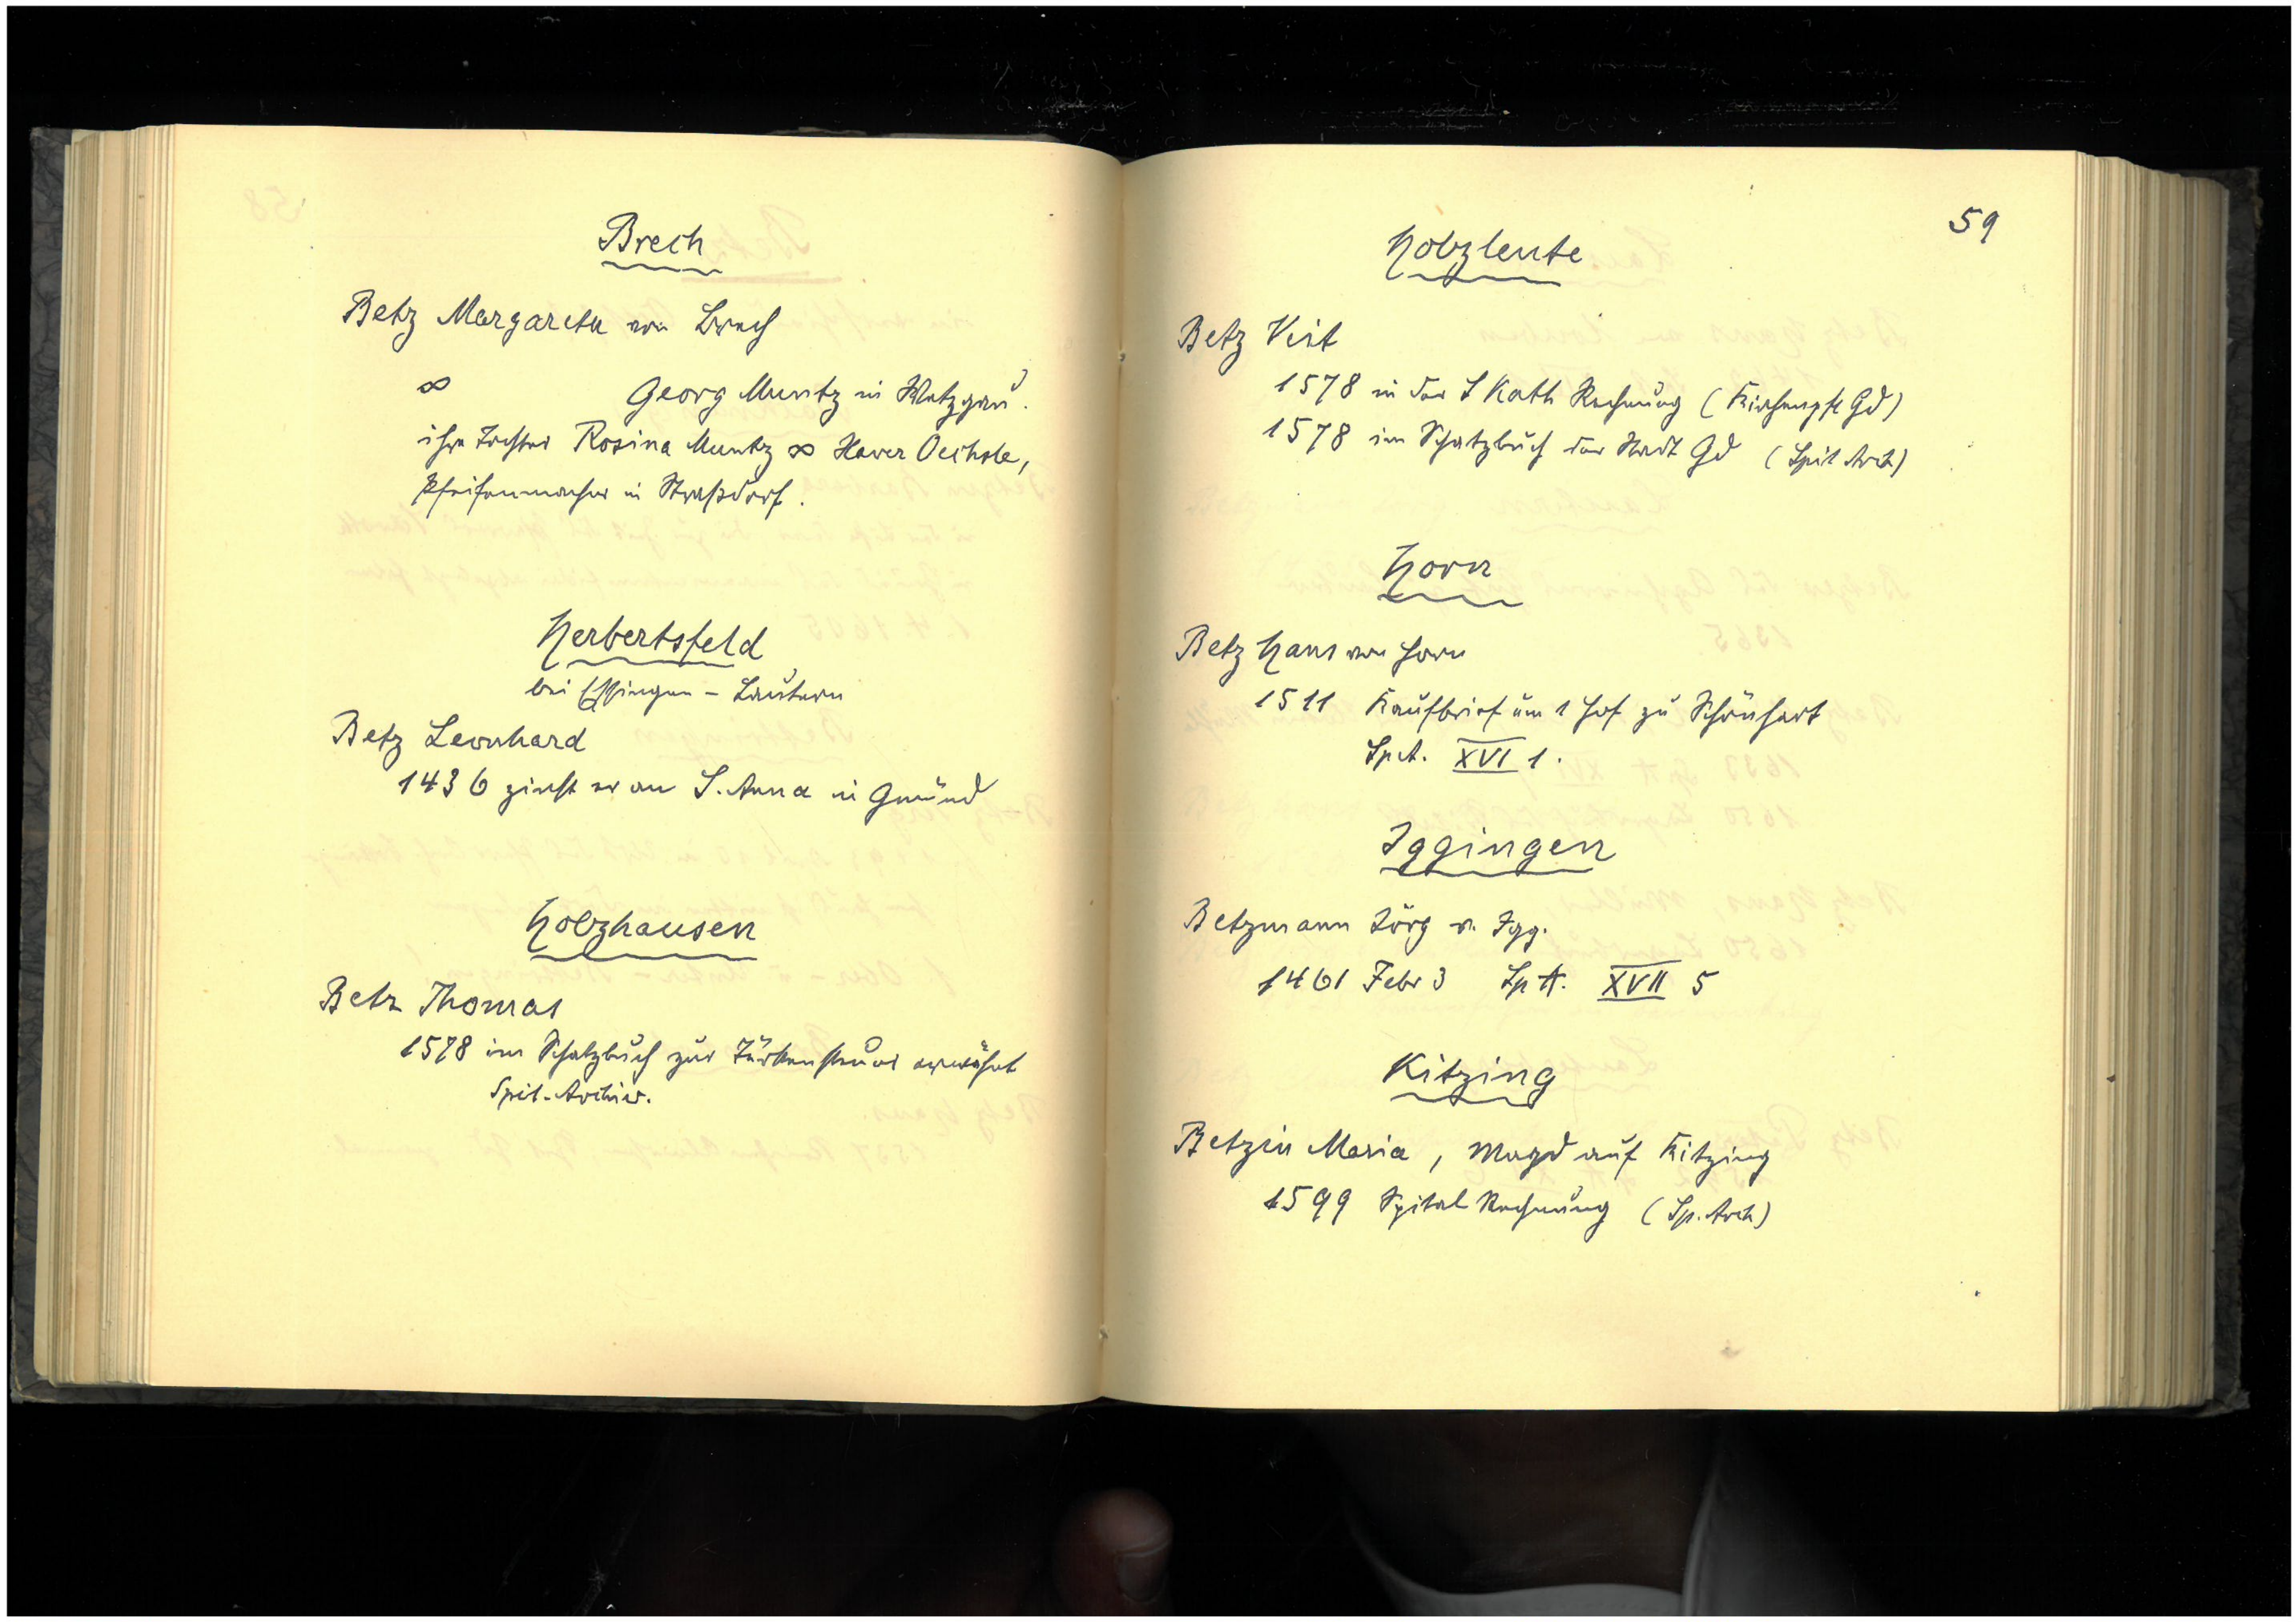 Brech
Betz Margareta von Brech
∞ Georg Muntz in Wetzgau.
ihre Tochter Rosina Muntz ∞ Xaver Oechsle,
Pfeifenmacher in Straßdorf.
Herbertsfeld
bei Essingen - Lautern
Betz Leonhard
1436 zinst er an S. Anna in Gmünd
Holzhausen
Betz Thomas
1578 im Schatzbuch zur Türkensteuer erwähnt
Spit-Archiv.
59
Holzleute
Betz Veit
1578 in der S Kath Rechnung (Kirchenpfl Gd)
1578 im Schatzbuch der Stadt Gd (Spit Arch)
Horn
Betz Hans von Horn
1511 Kaufbrief um 1 Hof zu Schönhart
Sp.A. XVI 1.
Iggingen
Betzmann Jörg v. Igg.
1461 Febr 3 Sp A. XVII 5
Kitzing
Betzin Maria, Magd auf Kitzing
1599 Spital Rechnung (Sp. Arch)